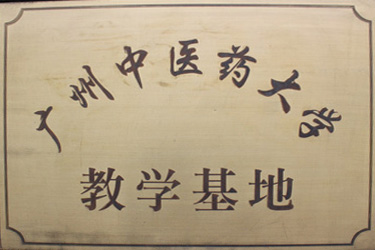 广州中医药大学
教学基地